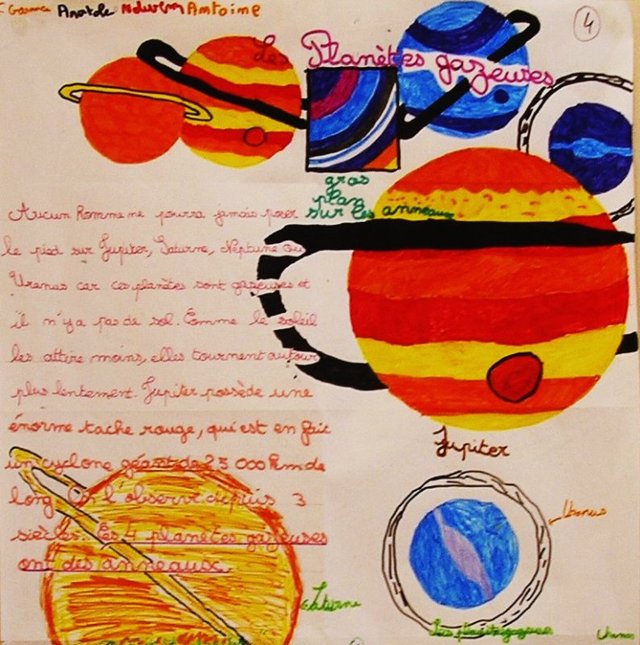 Anatole Antoine
4
Les Planètes gazeuses
gros
plan
sur les anneaux
Aucun homme ne pourra jamais poser
le pied sur Jupiter, Saturne, Neptune ou
Uranus car ces planètes sont gazeuses et
il n'y a pas de sol. Comme le soleil
les attire moins, elles tournent autour
plus lentement. Jupiter possède une
énorme tache rouge, qui est en fait
un cyclone géant de 25 000 km de
long. On l'observe depuis 3
siècles. Les 4 planètes gazeuses
ont des anneaux.
Jupiter
Uranus
Saturne
Les planètes gazeuses
Uranus